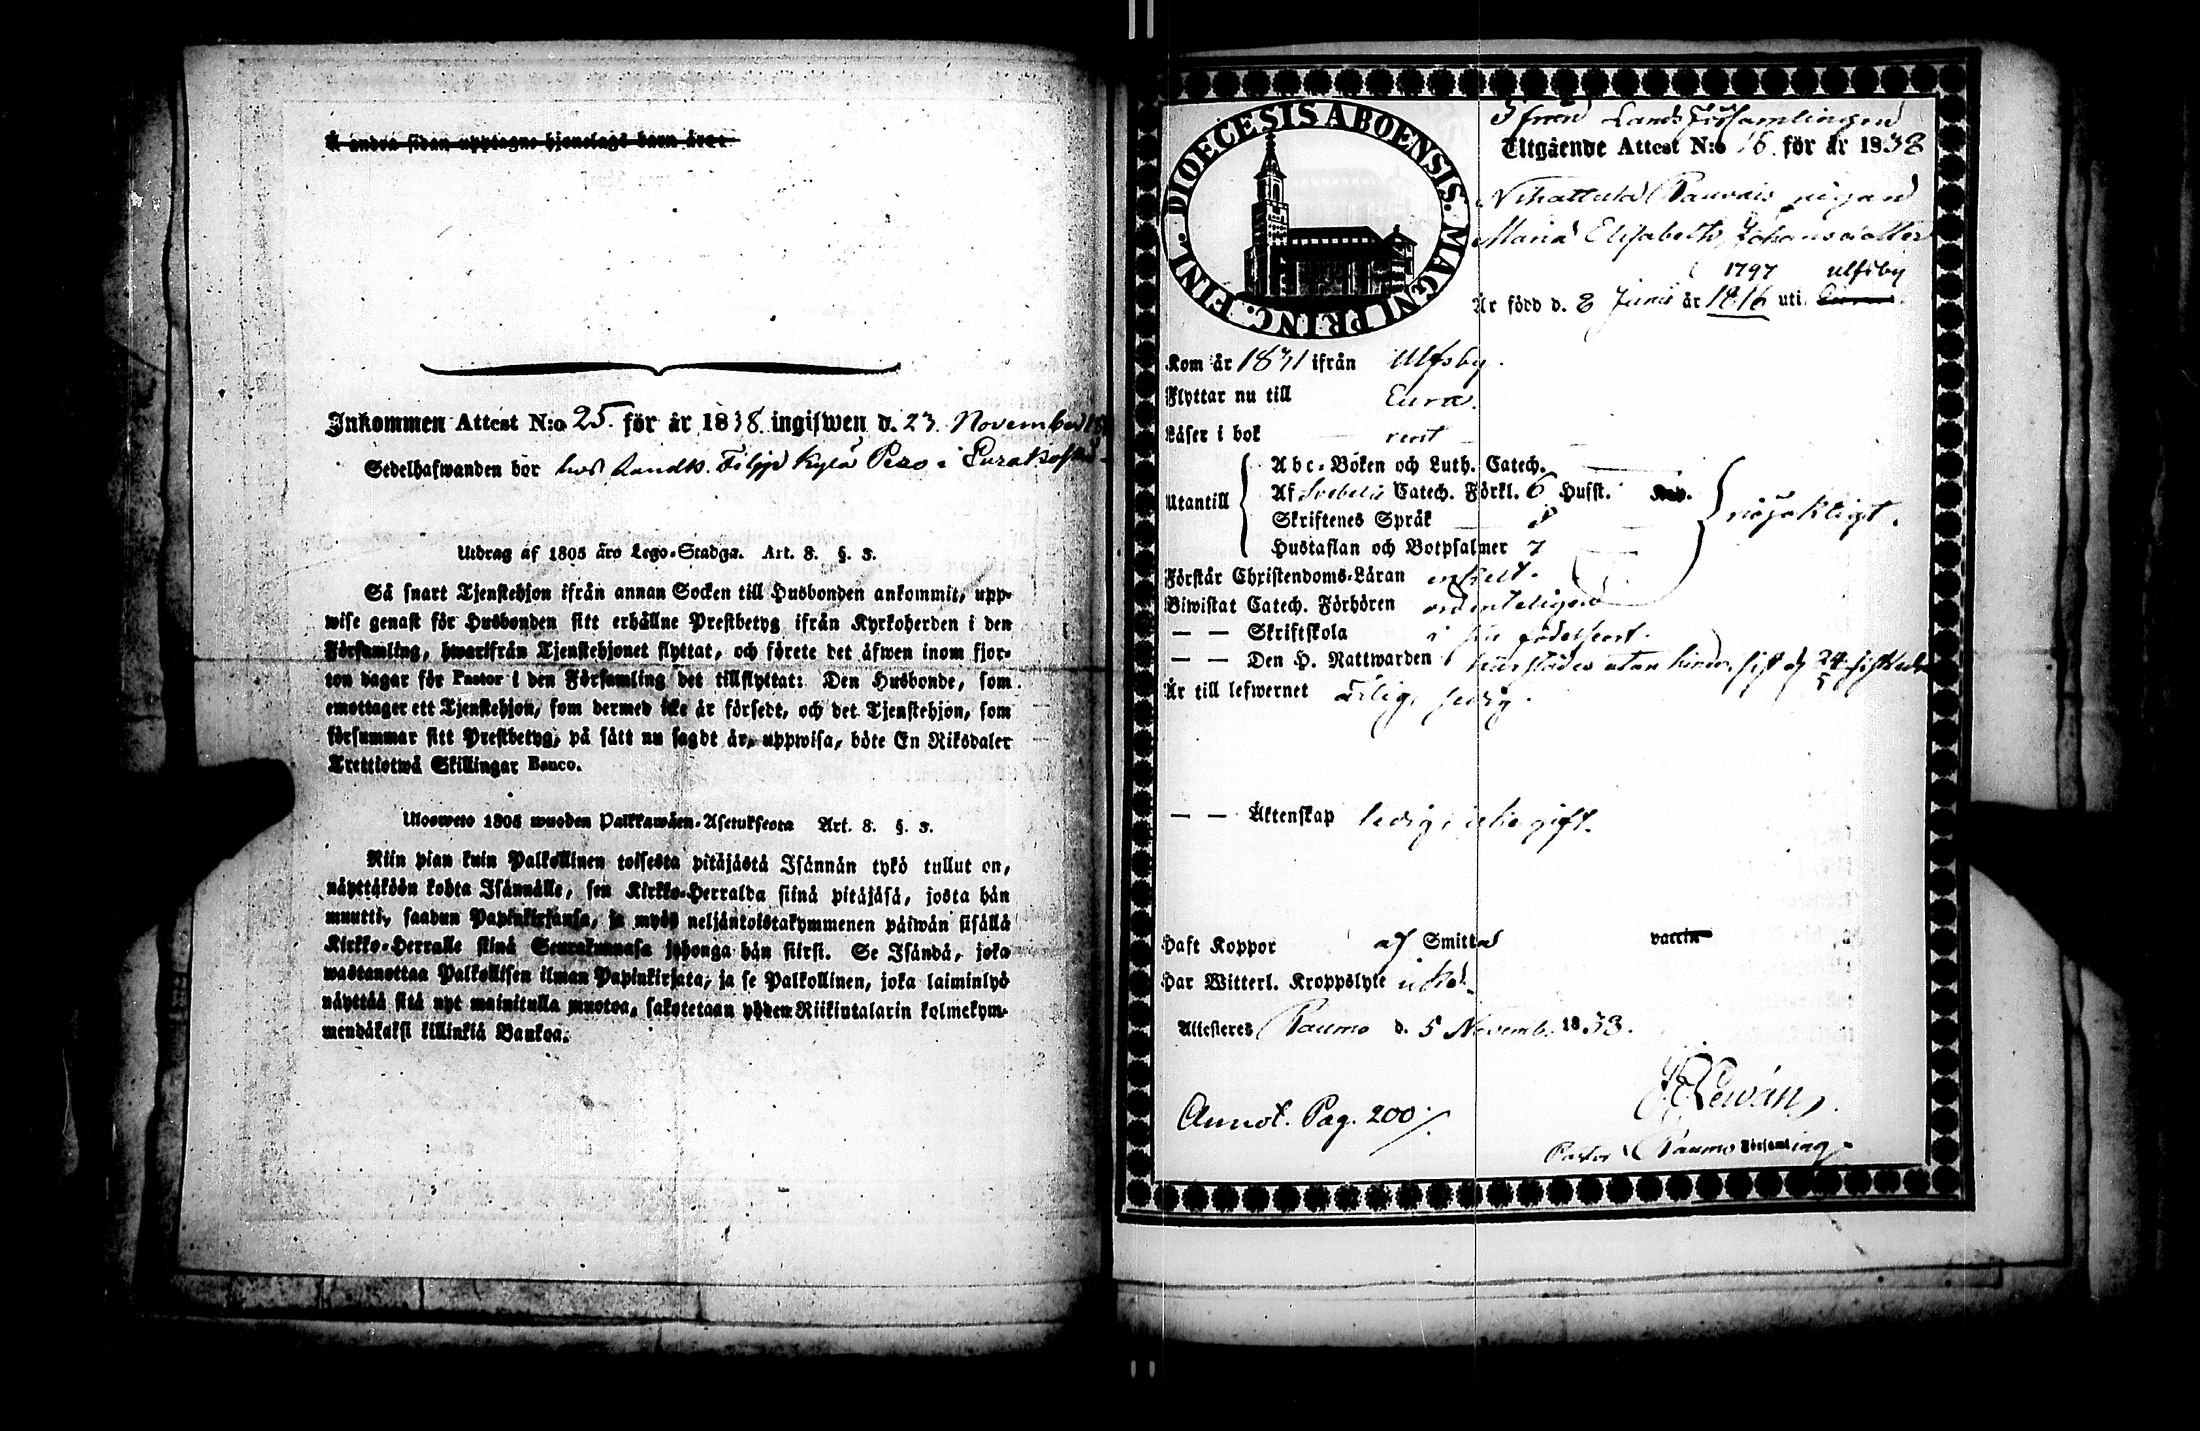 Å andra sidan upptagne hjonelags barn äro:
Inkommen Attest N:o 25 för år 1838 ingifwen d. 23 November
Sedelhafwanden bor hos Landb. Filpp Kylä Peso i
Utdrag af 1805 års Lego-Stadga. Art. 8. §. 3.
Så snart Tjenstehjon ifrån annan Socken till Husbonden ankommit, upp-
wise genast för Husbonden sitt erhållne Prestbetyg ifrån Kyrkoherden i den
Församling, hwarifrån Tjenstehjonet flyttat, och förete det äfwen inom fjor-
ton dagar för Pastor i den Församling det tillflyttat: Den Husbonde, som
emottager ett Tjenstehjon, som dermed icke är försedt, och det Tjenstehjon, som
försummar sitt Prestbetyg, på sätt nu sagdt är, uppwisa, böte En Riksdaler
Trettiotwå Skillingar Banco.
Uloswete 1805 wuoden Palkkawäen-Asetuksesta Art. 8. §. 3.
Niin pian kuin Palkollinen toisesta pitäjästä Isännän tykö tullut on,
näyttäköön kohta Isännälle, sen Kirkko-Herralda siinä pitäjäsä, josta hän
muutti, saadun Papinkirjansa, ja myös neljäntoistakymmenen päiwän sisällä
Kirkko-Herralle siinä Seurakunnasa johonga hän siirsi. Se Isändä, joka
wastanottaa Palkollisen ilman Papinkirjata, ja se Palkollinen, joka laiminlyö
näyttää sitä nyt mainitulla muotoa, sakotetaan yhden Riikintalarin kolmekym-
mendäkaksi killinkiä Bankoa.
DIOECESIS ABOENSIS. MAGNI PRINC. FINL.
Ifrån Lands Församlingen
Utgående Attest N:o 16 för år 1838
pigan
Maria Elisabeth Johansdotter
1797 Ulfsby
Är född d. 8 Junii år 1816 uti
Kom år 1831 ifrån Ulfsby.
Flyttar nu till Eura.
Läser i bok rent
Abc-Boken och Luth. Catech.
Utantill Af Svebelii Catech. Förkl. 6 Hufst. Kap. nöjaktigt.
Skriftenes Språk
Hustaflan och Botpsalmer 7
Förstår Christendoms-Läran enkelt.
Biwistat Catech. Förhören ordenteligen
— — Skriftskola i sin födelseort.
— — Den H. Nattwarden utan hinder, sist d. 24/5
Är till lefwernet ärlig, sedig.
— — Äktenskap ledig, icke gift.
Haft Koppor af Smitta vaccin
Har Witterl. Kroppslyte icke.
Attesteras Raumo d. 5 Novemb. 1838.
Annot. Pag. 200.
Pastor i Raumo Församling.